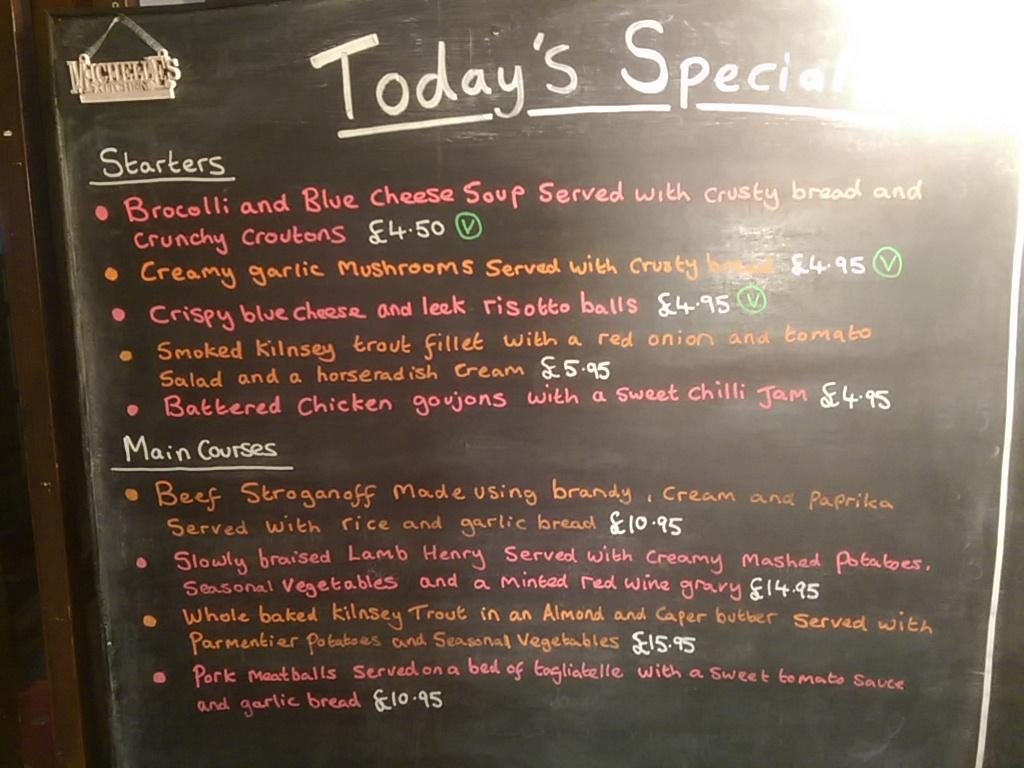 MICHELLE'S
Today's Special
Starters
• Brocolli and Blue Cheese Soup Served with crusty bread and
crunchy croutons £4.50 V
• Creamy garlic Mushrooms Served with crusty bread £4.95 V
• Crispy blue cheese and leek risotto balls £4.95 V
• Smoked Kilnsey trout fillet with a red onion and tomato
Salad and a horseradish cream £5.95
• Battered Chicken goujons with a sweet chilli Jam £4.95
Main Courses
• Beef Stroganoff Made using brandy, Cream and Paprika
Served with rice and garlic bread £10.95
• Slowly braised Lamb Henry Served with Creamy Mashed Potatoes,
Seasonal Vegetables and a Minted red wine gravy £14.95
• Whole baked Kilnsey Trout in an Almond and Caper butter Served with
Parmentier Potatoes and Seasonal Vegetables £15.95
• Pork Meatballs Served on a bed of tagliatelle with a Sweet tomato Sauce
and garlic bread £10.95